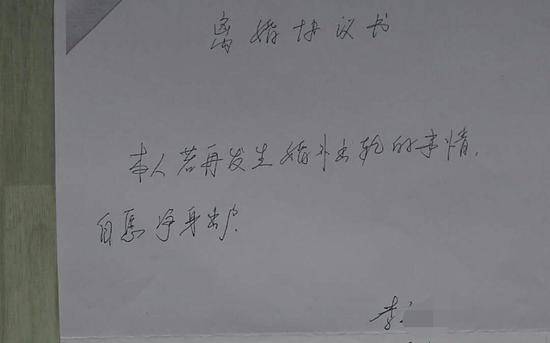 离婚协议书
本人若再发生婚外出轨的事情，
自愿净身出户.
李